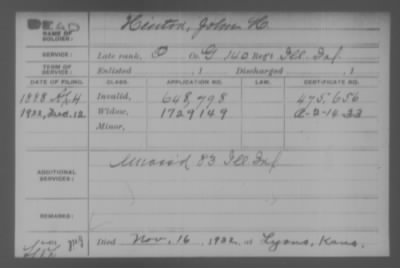 DEAD
NAME OF SOLDIER: Hinton, John H.
SERVICE: Late rank, P Co. G 140 Reg't Ill. Inf.
TERM OF SERVICE: Enlisted , 1 Discharged , 1
DATE OF FILING. CLASS. APPLICATION NO. LAW. CERTIFICATE NO.
1888 Invalid, 648,798 475,656
1932, Dec. 12 Widow, 1729149
Minor,
ADDITIONAL SERVICES: 83 Ill Inf
REMARKS:
Died Nov. 16, 1932, at Lyons, Kans.